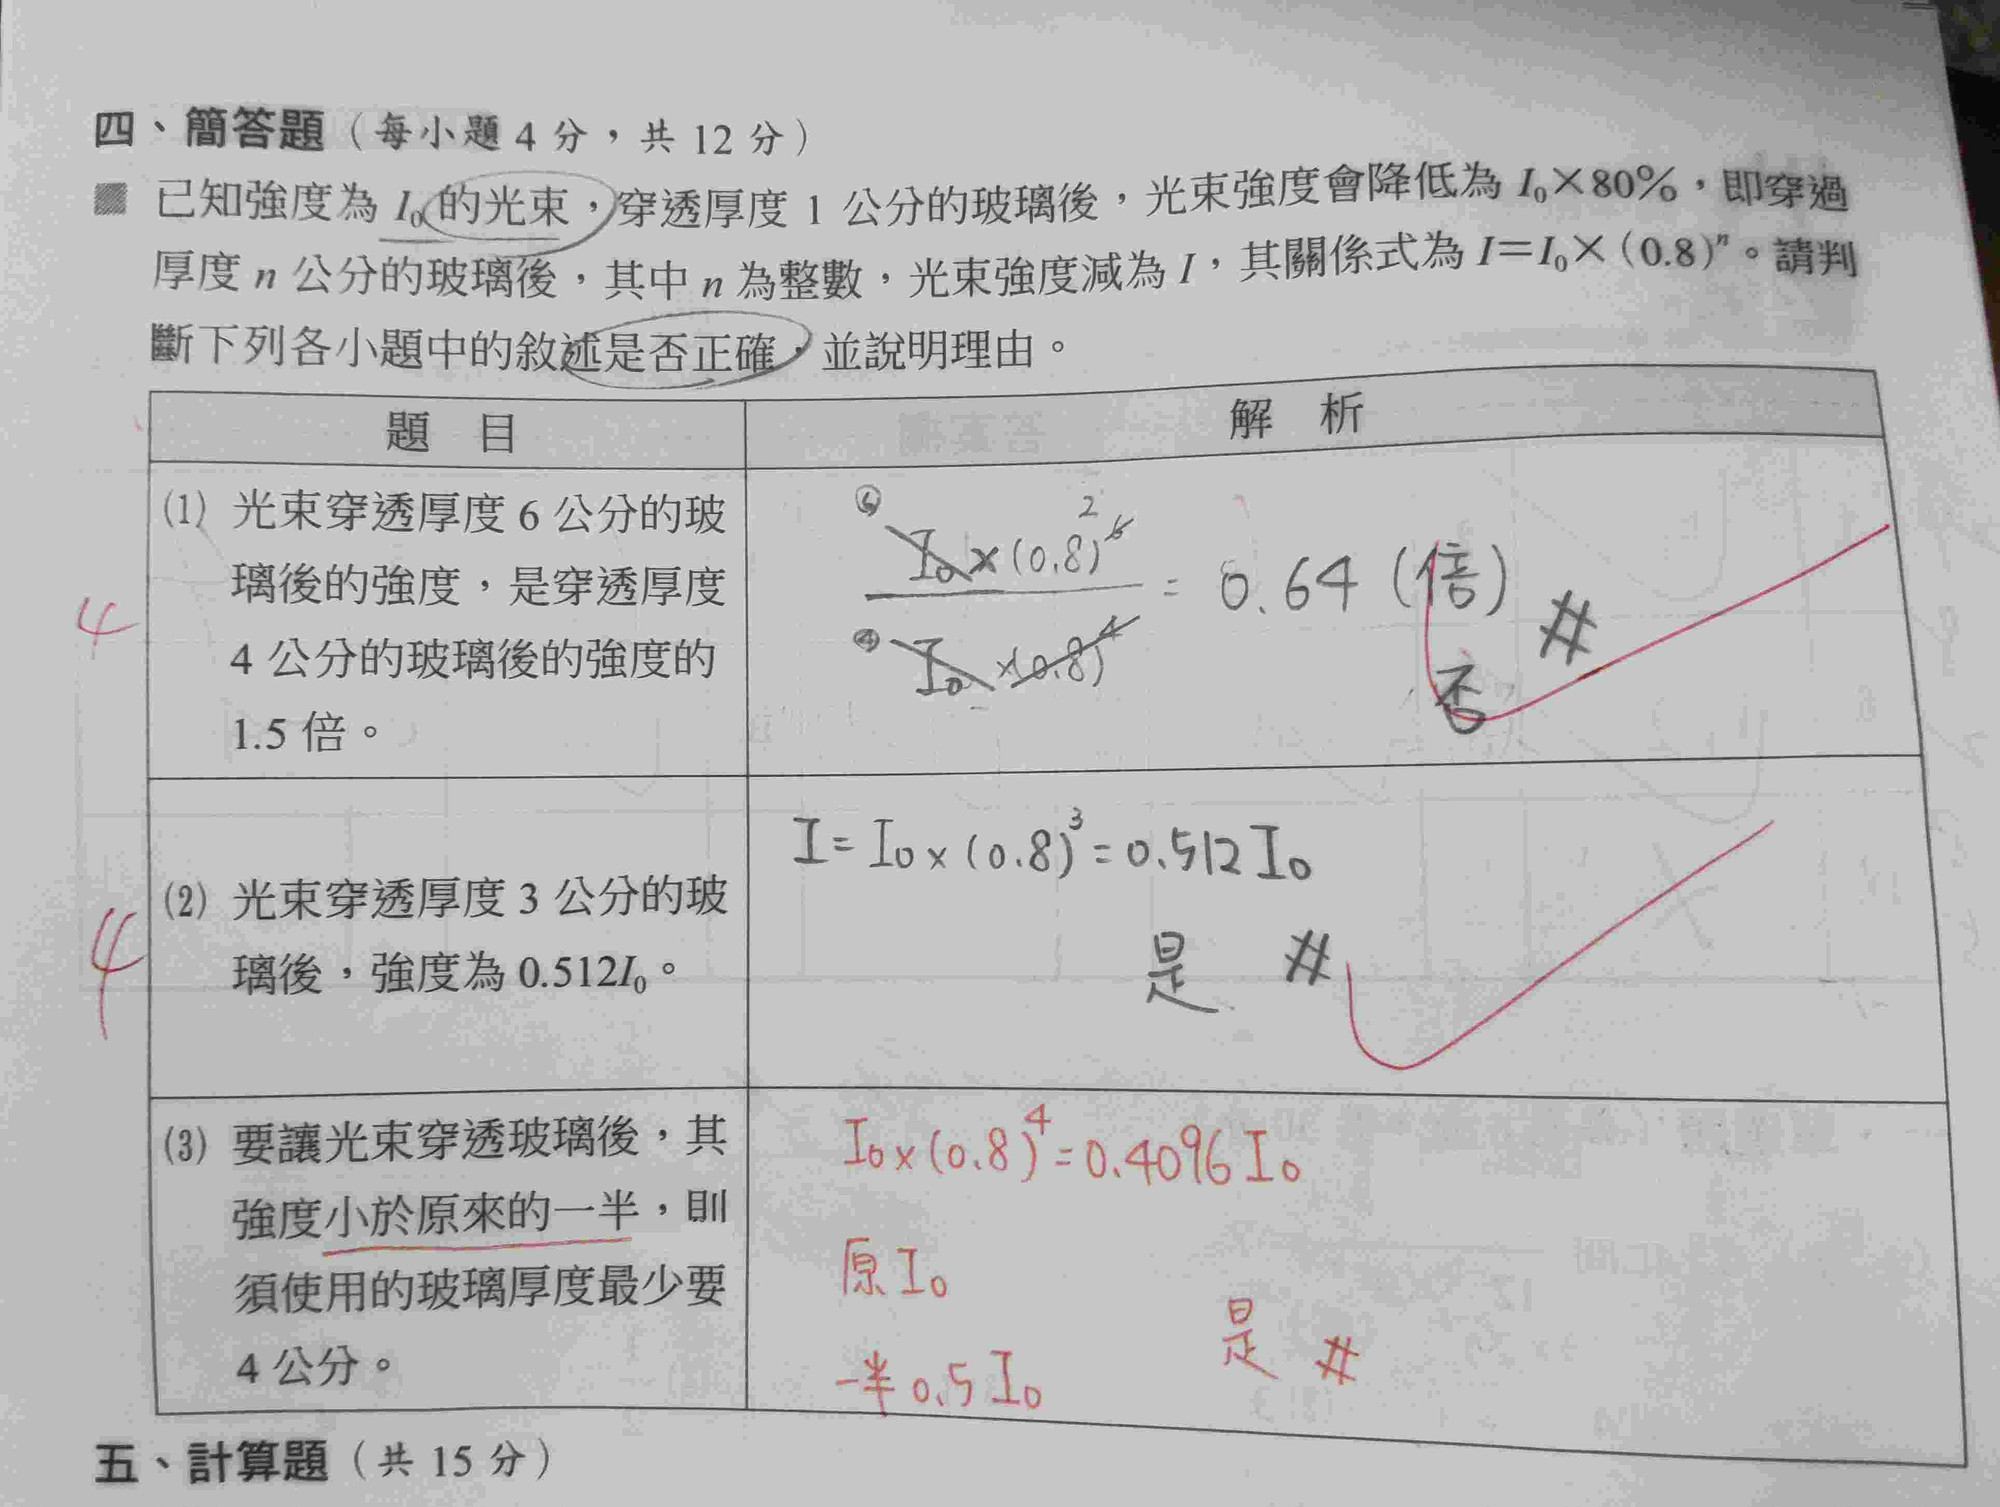 四、簡答題（每小題 4 分，共 12 分）
已知強度為 I₀ 的光束，穿透厚度 1 公分的玻璃後，光束強度會降低為 I₀×80%，即穿過
厚度 n 公分的玻璃後，其中 n 為整數，光束強度減為 I，其關係式為 I＝I₀×（0.8）ⁿ。請判
斷下列各小題中的敘述是否正確，並說明理由。
題 目
解 析
4
(1) 光束穿透厚度 6 公分的玻
璃後的強度，是穿透厚度
4 公分的玻璃後的強度的
1.5 倍。
⑥ I₀×(0.8)⁶ 2
④ I₀×(0.8)⁴
= 0.64 (倍) #
否
4
(2) 光束穿透厚度 3 公分的玻
璃後，強度為 0.512I₀。
I = I₀×(0.8)³ = 0.512 I₀
是 #
(3) 要讓光束穿透玻璃後，其
強度小於原來的一半，則
須使用的玻璃厚度最少要
4 公分。
I₀×(0.8)⁴ = 0.4096 I₀
原 I₀
一半 0.5 I₀
是 #
五、計算題（共 15 分）